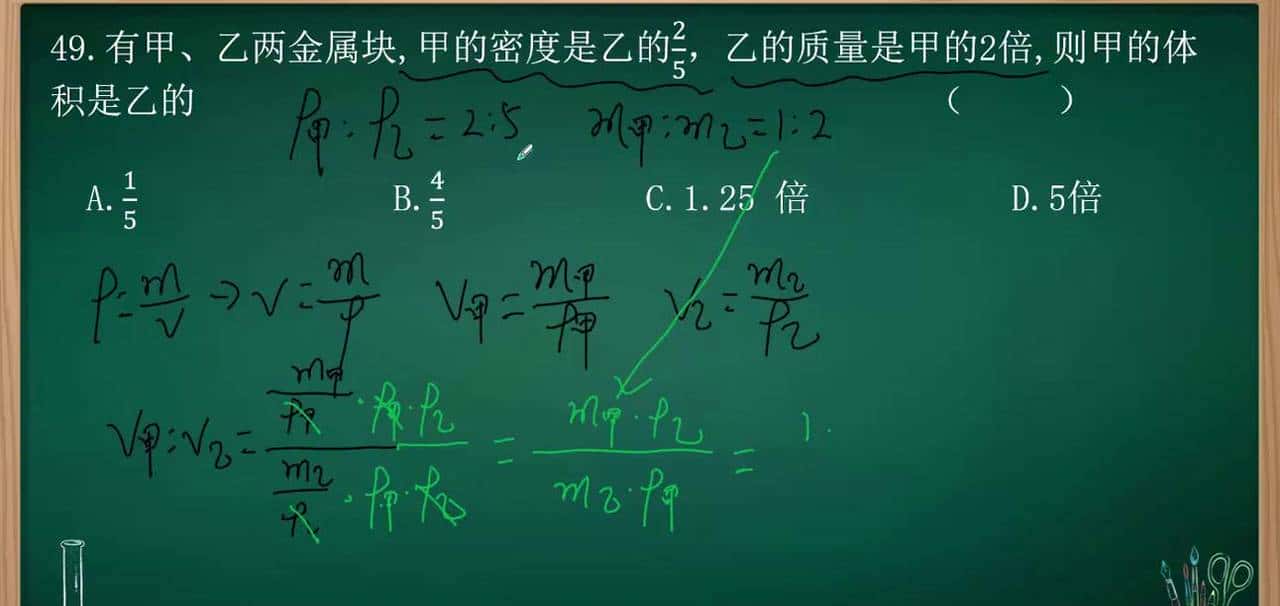 49.有甲、乙两金属块,甲的密度是乙的2/5，乙的质量是甲的2倍,则甲的体
积是乙的 (    )
ρ甲:ρ乙=2:5 m甲:m乙=1:2
A.1/5 B.4/5 C.1.25 倍 D.5倍
ρ=m/V→V=m/ρ V甲=m甲/ρ甲 V乙=m乙/ρ乙
V甲:V乙=(m甲/ρ甲·ρ甲·ρ乙)/(m乙/ρ乙·ρ甲·ρ乙)=(m甲·ρ乙)/(m乙·ρ甲)=1·